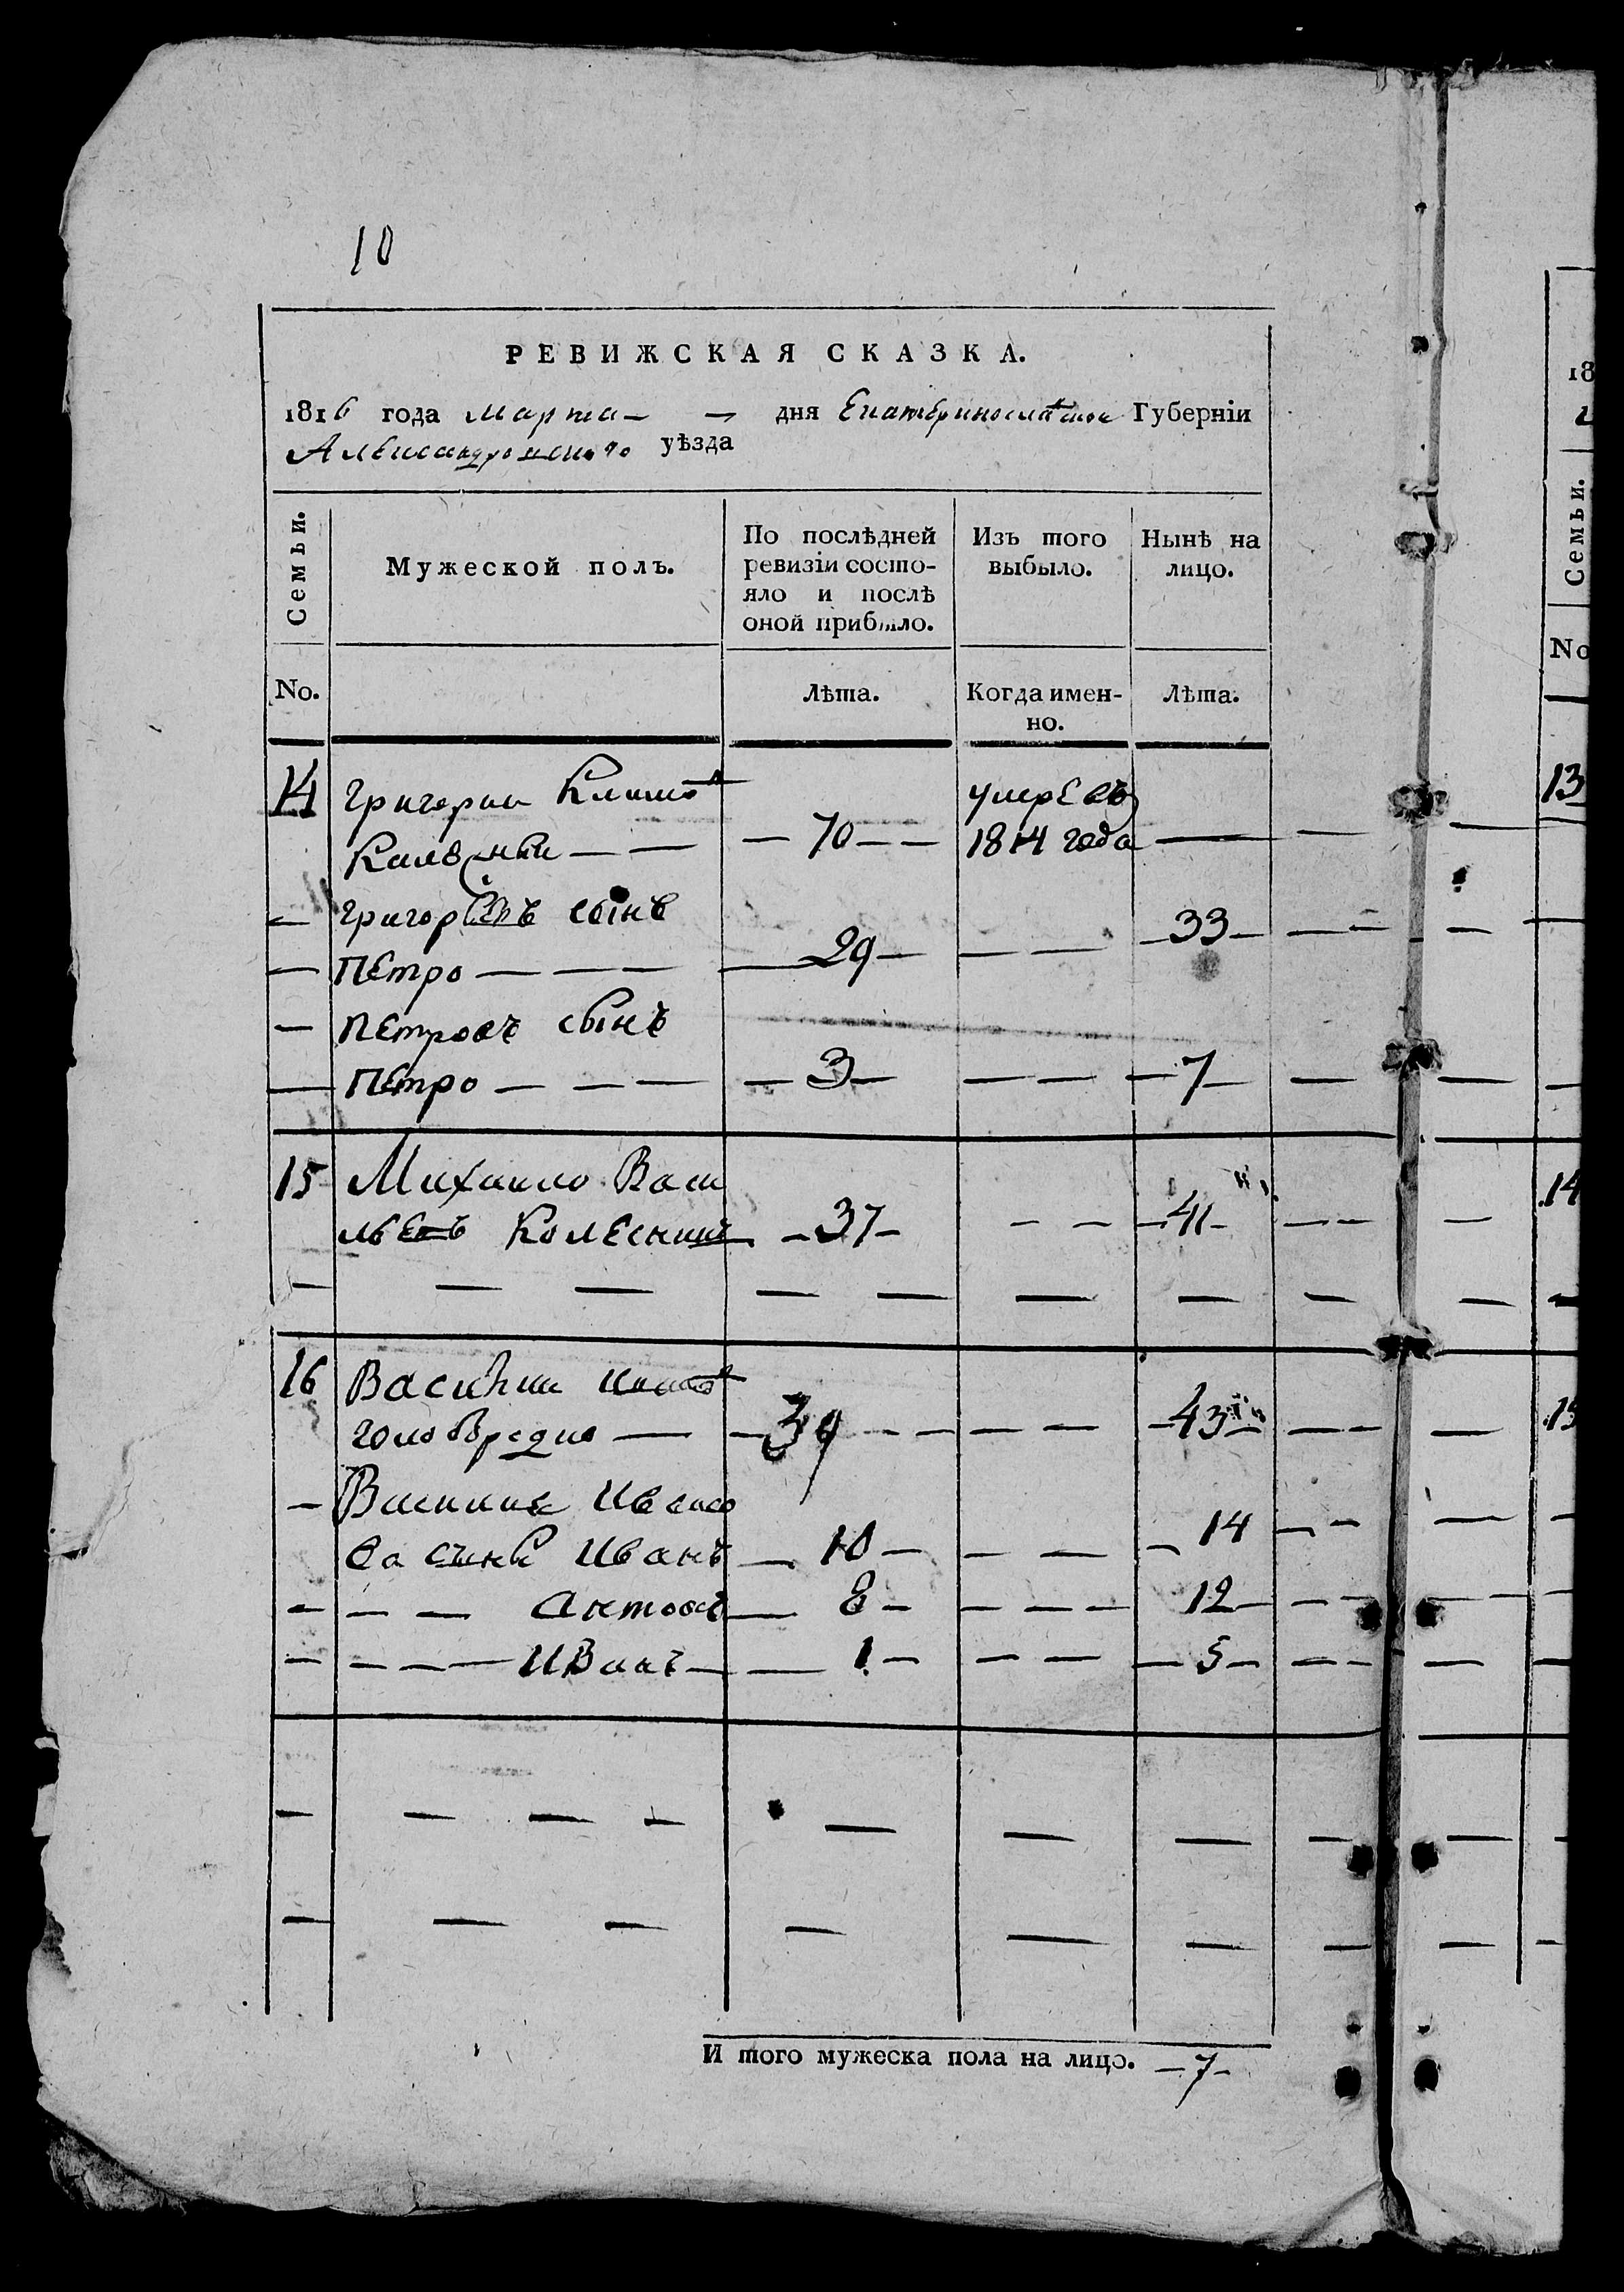 10
РЕВИЖСКАЯ СКАЗКА.
1816 года Марта — — дня Екатеринославской Губерніи
Александровского уѣзда
Семьи.
Мужеской полъ.
По послѣдней ревизіи состо-
яло и послѣ
оной прибыло.
Изъ того
выбыло.
Нынѣ на
лицо.
No.
Лѣта.
Когда имен-
но.
Лѣта.
14 Григории Климов умрЕвъ
— 70 — — 1814 года —
— Григорьевъ сынъ
— ПЕтро — — — — 29 — — — — 33 —
— ПЕтровъ сынъ
— ПЕтро — — — — 3 — — — — 7 —
15 Михаило Васи
льЕвъ КолЕсникъ — 37 — — — — 41 —
16 Василии Иванов
— 39 — — — — — 43 —
— Василия Ивано
ва сынъ Иванъ — 10 — — — — 14
— — — Антонъ — 8 — — — — 12 —
— — — — Иванъ — — 1 — — — — 5 —
И того мужеска пола на лицо. — 7 —
18
Семьи.
No
13
14
15